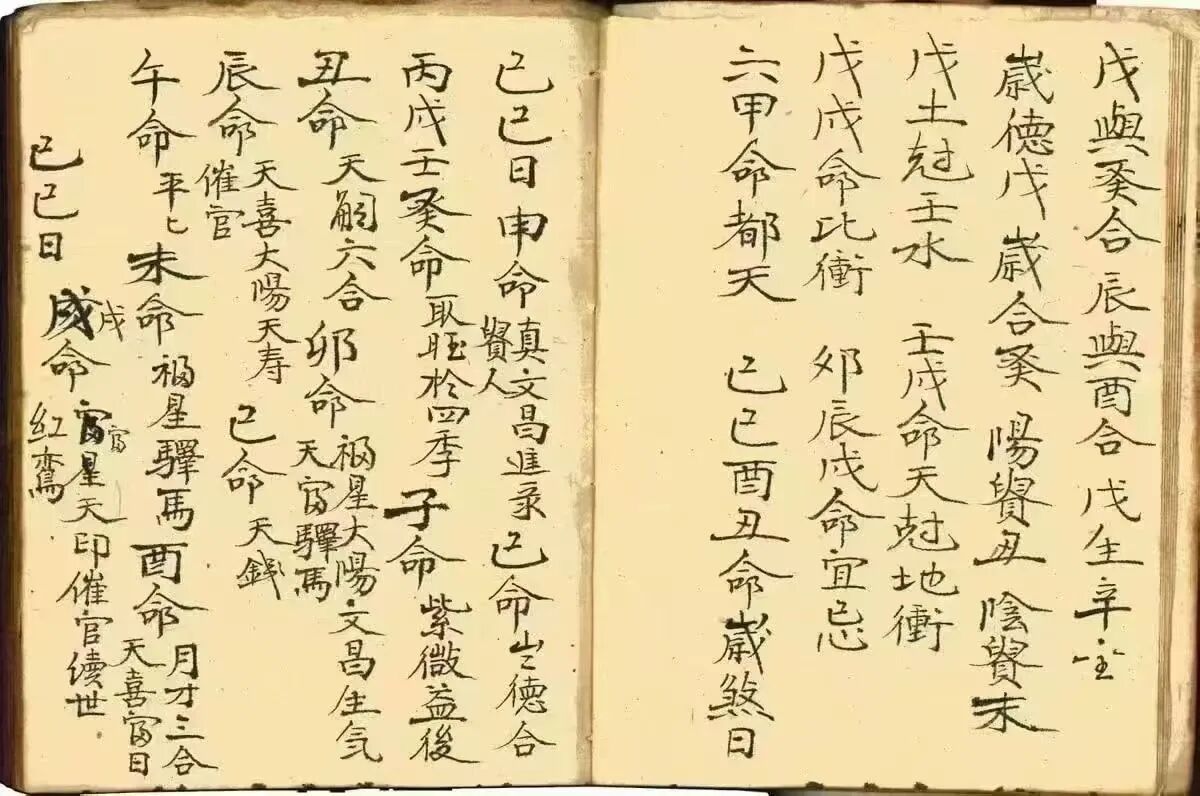 戊與癸合　辰與酉合　戊生辛金
歲德戊　歲合癸　陽貴丑　陰貴未
戊土尅壬水　壬戌命天尅地衝
戊戌命比衝　卯辰戌命宜忌
六甲命都天　己巳酉丑命歲煞日
己巳日申命真文昌進彔　己命歲德合
貴人
丙戌壬癸命取旺於四季　子命紫微益後
丑命天嗣六合　卯命福星大陽文昌生气
天富驛馬
辰命天喜大陽天寿　巳命天錢
催官
午命平匕　未命福星驛馬　酉命月才三合
天喜富日
己巳日　戌命富星天印催官續世
戌　富
紅鸞